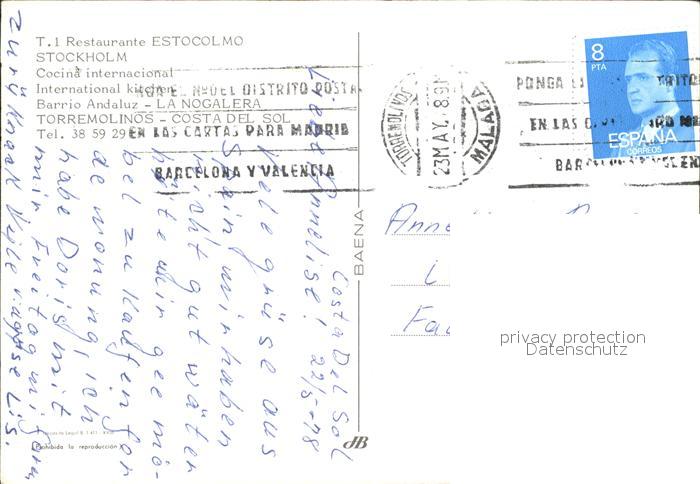 T.1 Restaurante ESTOCOLMO
STOCKHOLM
Cocina internacional
International kitchen
Barrio Andaluz - LA NOGALERA
TORREMOLINOS - COSTA DEL SOL
Tel. 38 59 29
PONGA EL Nº DEL DISTRITO POSTAL
EN LAS CARTAS PARA MADRID
BARCELONA Y VALENCIA
TORREMOLINOS
23 MAY. 8.9
MALAGA
PONGA
EN LAS
BARCELONA Y VALEN
8
PTA
ESPAÑA
CORREOS
Costa Del Sol
22/5-78
Liebe Annelise!
Viele grüse aus
Spain wir haben
nicht gut wäter
heute wir gee mö-
bel zu kaufen for
de wonung, ich
habe Doris mit
mir Freitag
Lis.
BAENA
Anne
Prohibida la reproducción
dB
privacy protection
Datenschutz